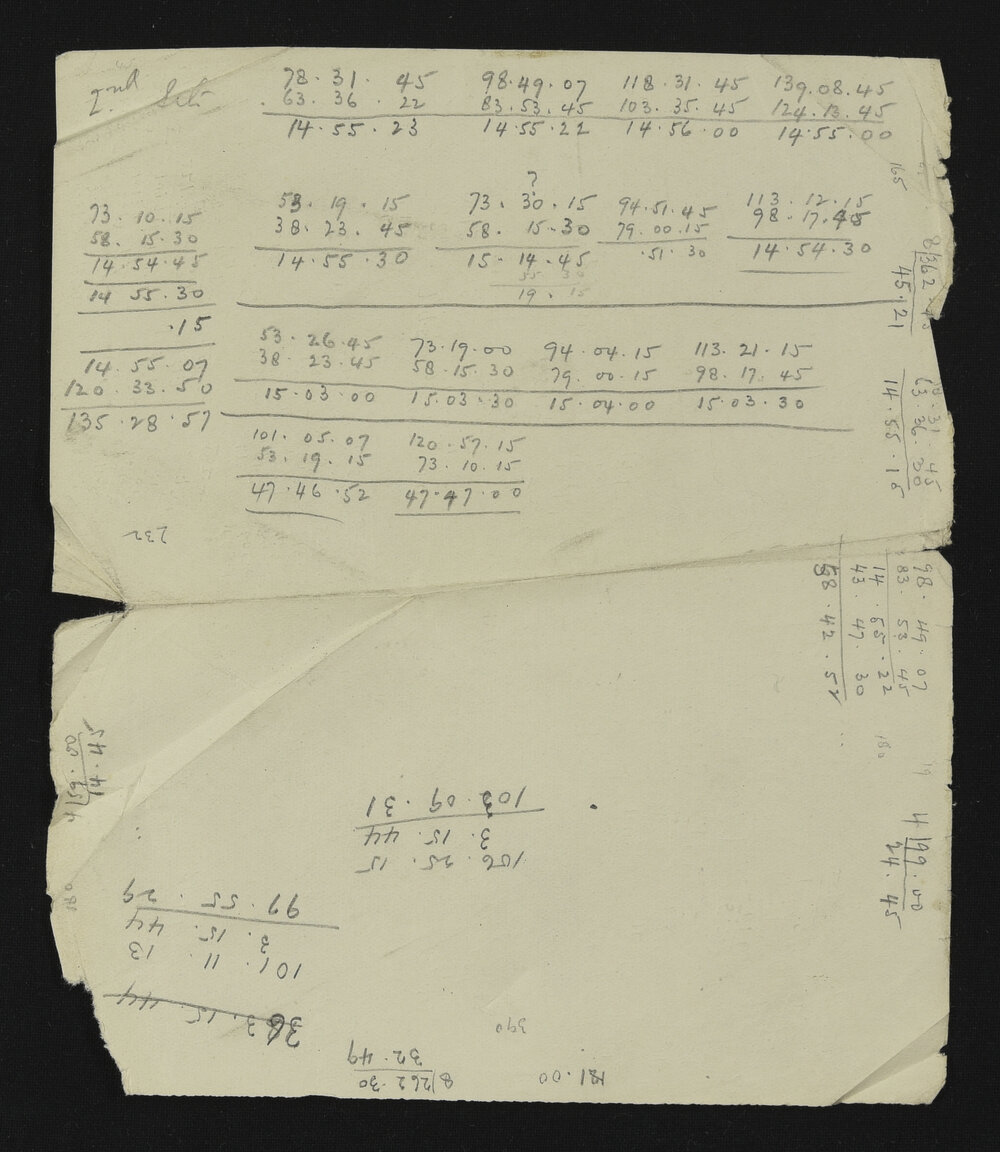 2nd Set
78. 31. 45 98.49.07 118.31.45 139.08.45
63. 36. 22 83.53.45 103.35.45 124.13.45
14.55.23 14.55.22 14.56.00 14.55.00
165
?
53. 19. 15 73. 30. 15 94.51.45 113.12.15
38. 23. 45 58. 15.30 79.00.15 98.17.45
14.55.30 15.14.45 .51.30 14.54.30
55 30
19. 15
73. 10. 15
58. 15. 30
14. 54. 45
14 55. 30
.15
14. 55. 07
120. 33. 50
135. 28. 57
53. 26.45 73.19.00 94.04.15 113.21.15
38. 23.45 58.15.30 79.00.15 98.17.45
15.03.00 15.03.30 15.04.00 15.03.30
101. 05.07 120.57.15
53. 19. 15 73.10.15
47.46.52 47.47.00
232
8|362
45.121
78. 31. 45
63. 36. 30
14. 55. 15
98. 49. 07
83. 53. 45
14. 55. 22
43. 47. 30
58. 42. 52
180
19
4|99.00
24.45
4|59.00
14.45
180
106. 25. 15
3. 15. 44
103. 09. 31
363. 15. 44
101. 11. 13
3. 15. 44
97. 55. 29
390
8|262.30
32.49
181.00